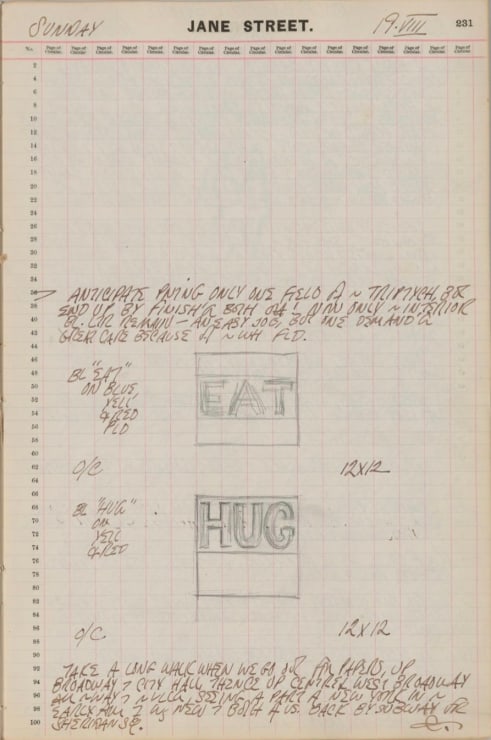 SUNDAY JANE STREET. 19·VIII 231
No. Page of Census. Page of Census. Page of Census. Page of Census. Page of Census. Page of Census. Page of Census. Page of Census. Page of Census. Page of Census. Page of Census. Page of Census. Page of Census. Page of Census. Page of Census. Page of Census. Page of Census.
2
4
6
8
10
12
14
16
18
20
22
24
26
28
30
32
34
ANTICIPATE ONLY ONE FIELD ~ TRIPTYCH, BUT
38
END UP BY FINISH'G BOTH ONLY ~ INTERIOR
40
REMAIN — AN EASY JOB, BUT ONE DEMAND'G
42
GTER CARE BECAUSE ~ WH FLD.
44
46
48
BL "EAT"
50
ON BLUE,
52
YELL
54
& RED
56
FLD
EAT
58
60
62
O/C 12X12
64
66
68
BL "HUG"
70
ON
72
YELL
74
& RED
HUG
76
78
80
82
84
86
88
O/C 12X12
90
92
TAKE A LONG WALK WHEN WE GO OUT FOR PAPERS, UP
94
BROADWAY CITY HALL, THENCE UP CENTRE, WEST BROADWAY
96
SEEING A PART NEW YORK IN ~
98
EARLY NEW BOTH US. BACK BY SUBWAY
100
SHERIDAN SQ.